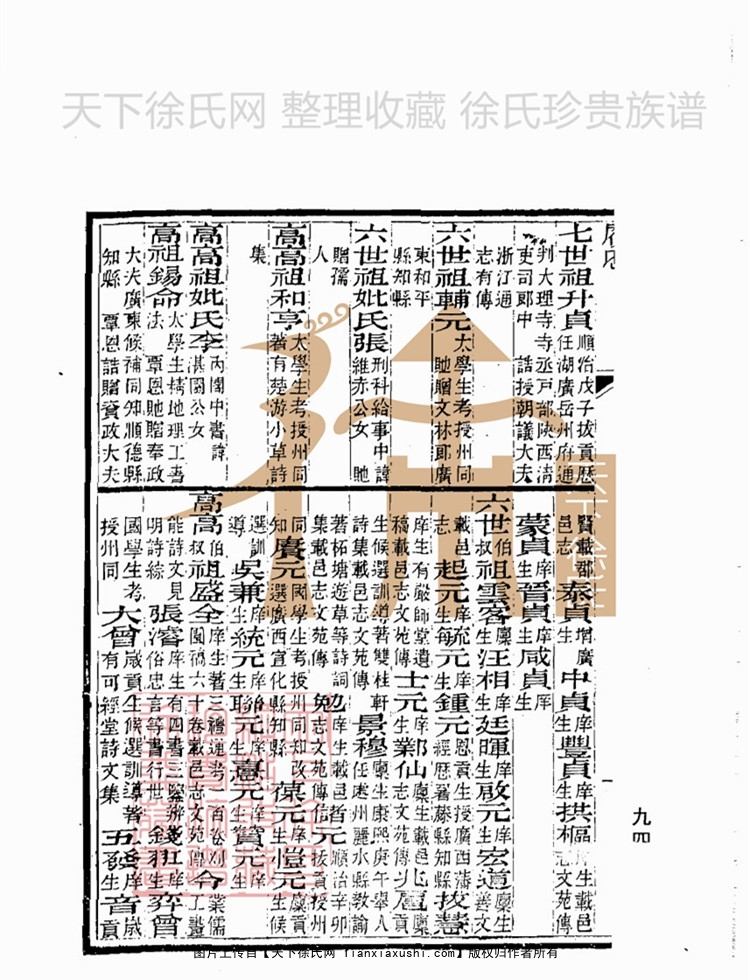 天下徐氏网 整理收藏 徐氏珍贵族谱
七世祖升貞 順治戊子拔貢歷任湖廣岳州府通
判大理寺寺丞戸部陝西清
吏司郎中 誥授朝議大夫
浙江通
志有傳
六世祖輔元 太學生考授州同 貤贈文林郎廣
東和平
縣知縣
六世祖妣氏張 刑科給事中諱維赤公女 貤
贈孺
人
高高祖和亨 太學生考授州同著有楚游小草詩
集
高高祖妣氏李 內閣中書諱湛園公女
高祖錫命 太學生精地理工書法 覃恩貤贈奉政
大夫廣東候補同知順德縣
知縣 覃恩誥贈資政大夫
賢載郡邑志 泰貞 增廣生 中貞 庠生 豐貞 庠生 拱樞 庠生載邑志文苑傳
蒙貞 庠生 晉貞 庠生 咸貞 庠生
六世伯叔祖雲客 廩生 汪相 庠生 廷暉 庠生 啟元 庠生 宏道 廩生善文
載邑志 起元 庠生 毓元 庠生 每元 庠生 鍾元 恩貢生授廣西藩經歷署藤縣知縣 拔
庠生有嚴師堂遺稿載邑志文苑傳 士元 庠生 業仙 廩生載邑志文苑傳
生候選訓導著雙桂軒詩集載邑志文苑傳 景穆 廩生康熙庚午舉人任處州麗水縣教諭
著柘塘遊草等詩詞集載邑志文苑傳 勉 庠生載邑志文苑傳 元 順治辛卯拔貢授州
同知 廣元 國學生考授州同知改選廣西宣化縣知縣 葆元 庠生 愷元 廩貢生候
選訓導 吳兼 庠生 統元 庠生 元 庠生 憲元 庠生 寶元 庠生
高高伯叔祖盛全 庠生著三禮運考一百卷 園稿六十卷載邑志文苑傳 令 業儒工畫
能詩文見明詩綜 張濬 庠生有四書三鑒辨 俗忠言等書行世 庠生 弈曾
國學生考授州同 大曾 歲貢生候選訓導著有可經堂詩文集 五發 庠生 音 歲貢
九四
图片上传自【天下徐氏网 tianxiaxushi.com】版权归作者所有